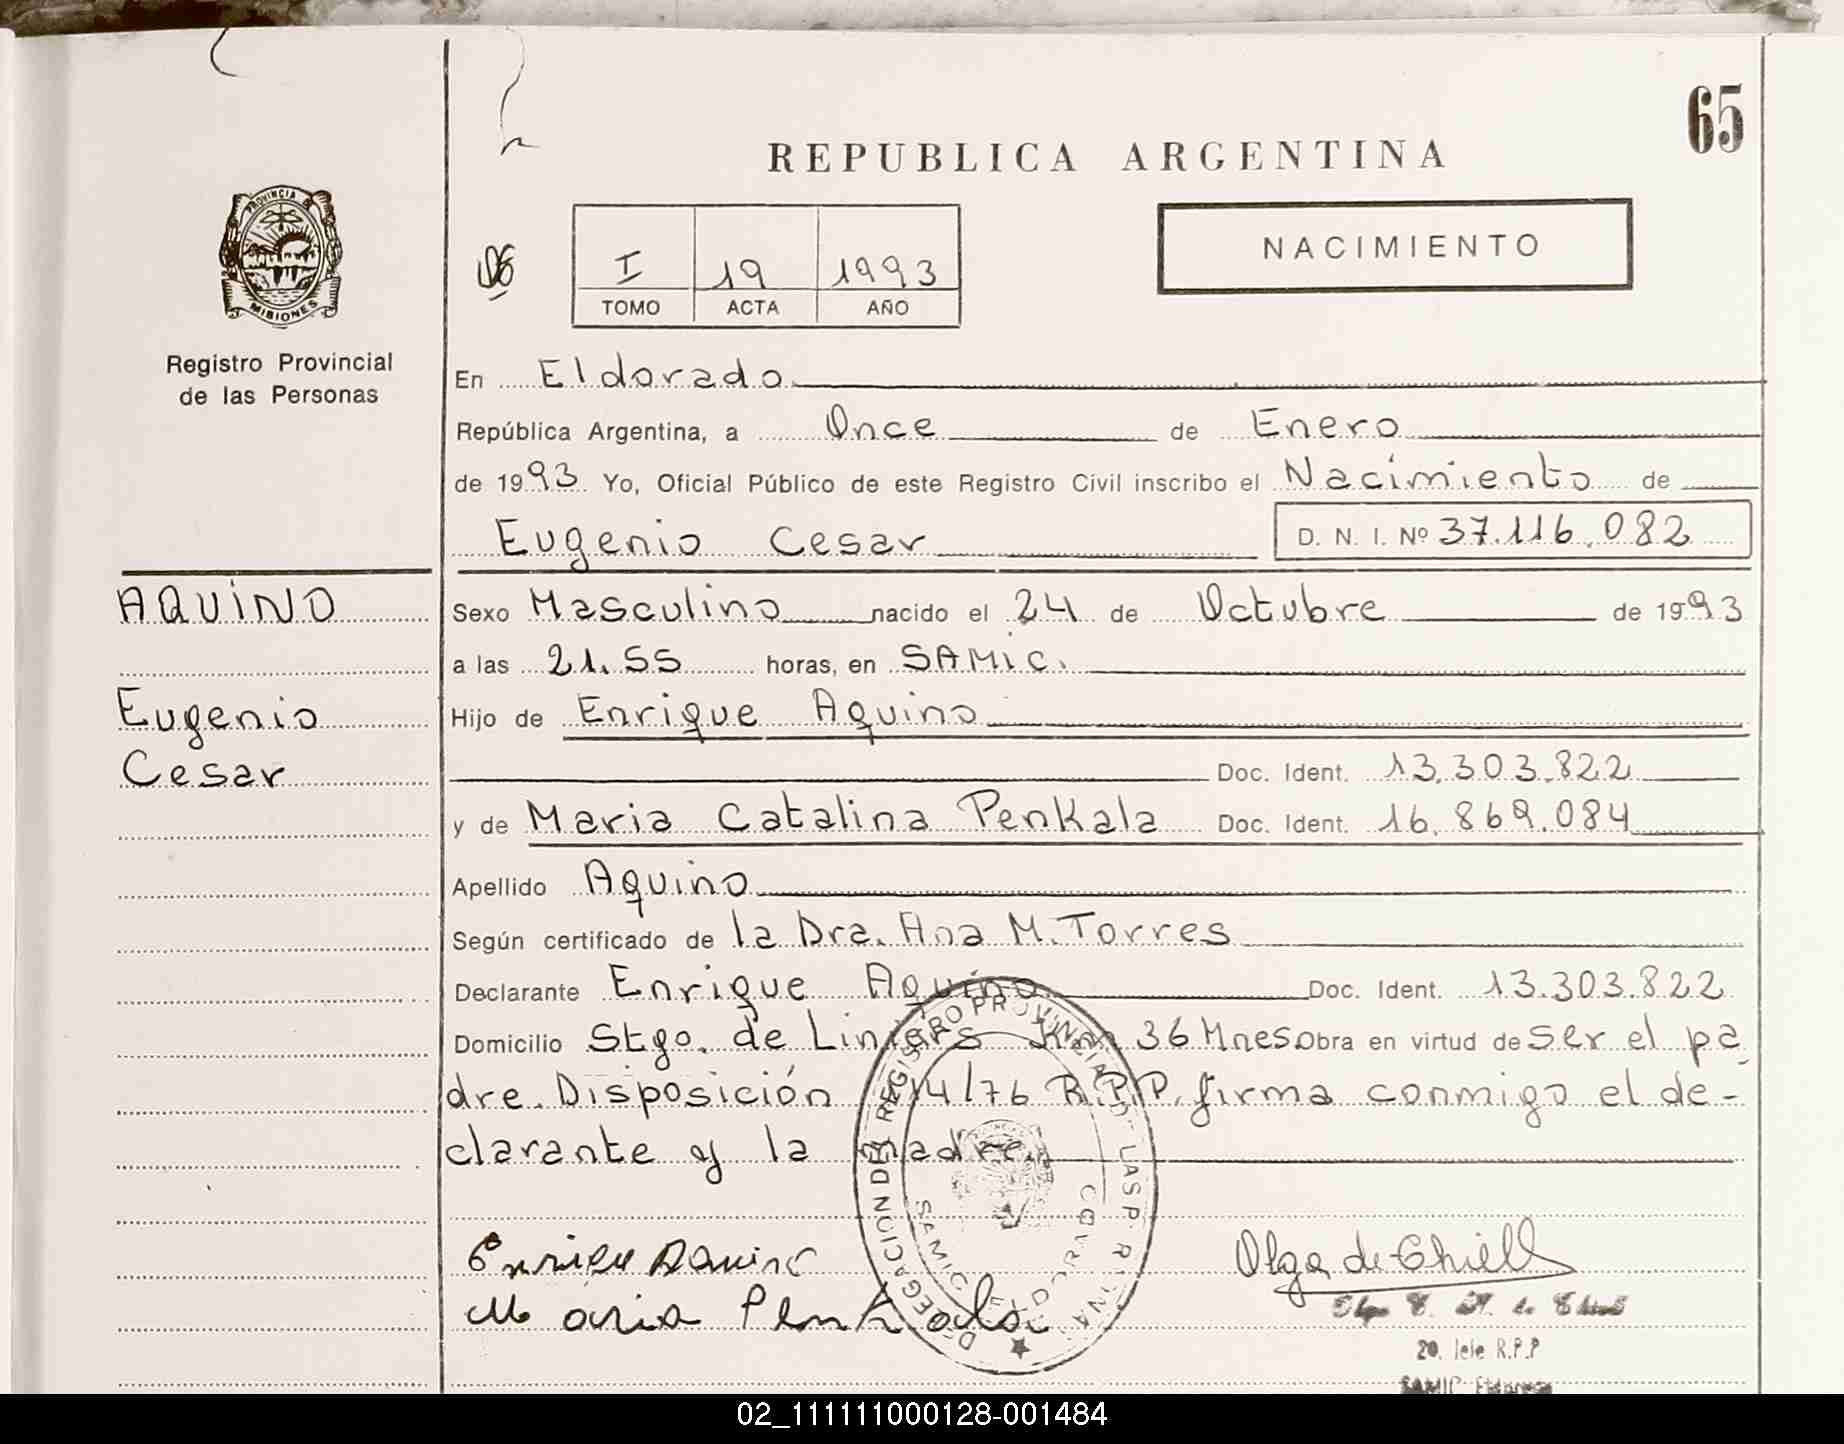 65
REPUBLICA ARGENTINA
PROVINCIA DE
MISIONES
Registro Provincial
de las Personas
I 19 1993
TOMO ACTA AÑO
NACIMIENTO
En Eldorado
República Argentina, a Once de Enero
de 1993 Yo, Oficial Público de este Registro Civil inscribo el Nacimiento de
Eugenio Cesar D. N. I. Nº 37.116.082
AQUINO
Eugenio
Cesar
Sexo Masculino nacido el 24 de Octubre de 1993
a las 21.55 horas, en SAMIC.
Hijo de Enrique Aquino
Doc. Ident. 13.303.822
y de Maria Catalina Penkala Doc. Ident. 16.869.084
Apellido Aquino
Según certificado de la Dra. Ana M. Torres
Declarante Enrique Aquino Doc. Ident. 13.303.822
Domicilio Stgo. de Liniers Km 36 Mnes Obra en virtud de ser el pa
dre. Disposición 14/76 R.P.P. firma conmigo el de-
clarante y la madre.
Enrique Aquino
Maria Penkala
Olga de Chiell
DELEGACION DEL REGISTRO PROVINCIAL DE LAS P.
SAMIC
20. Jefe R.P.P
SAMIC Eldorado
02_111111000128-001484